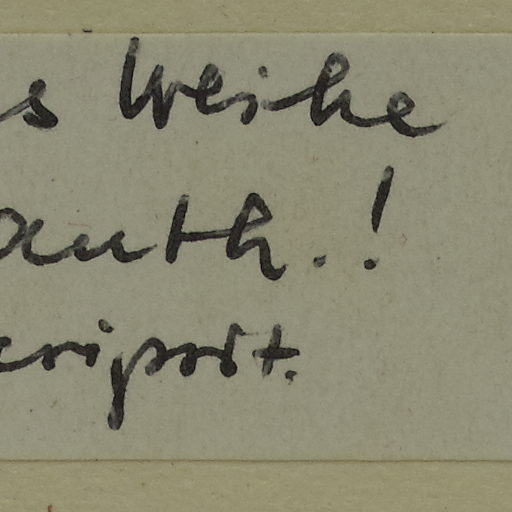 s Weihe
auth.!
eripost.